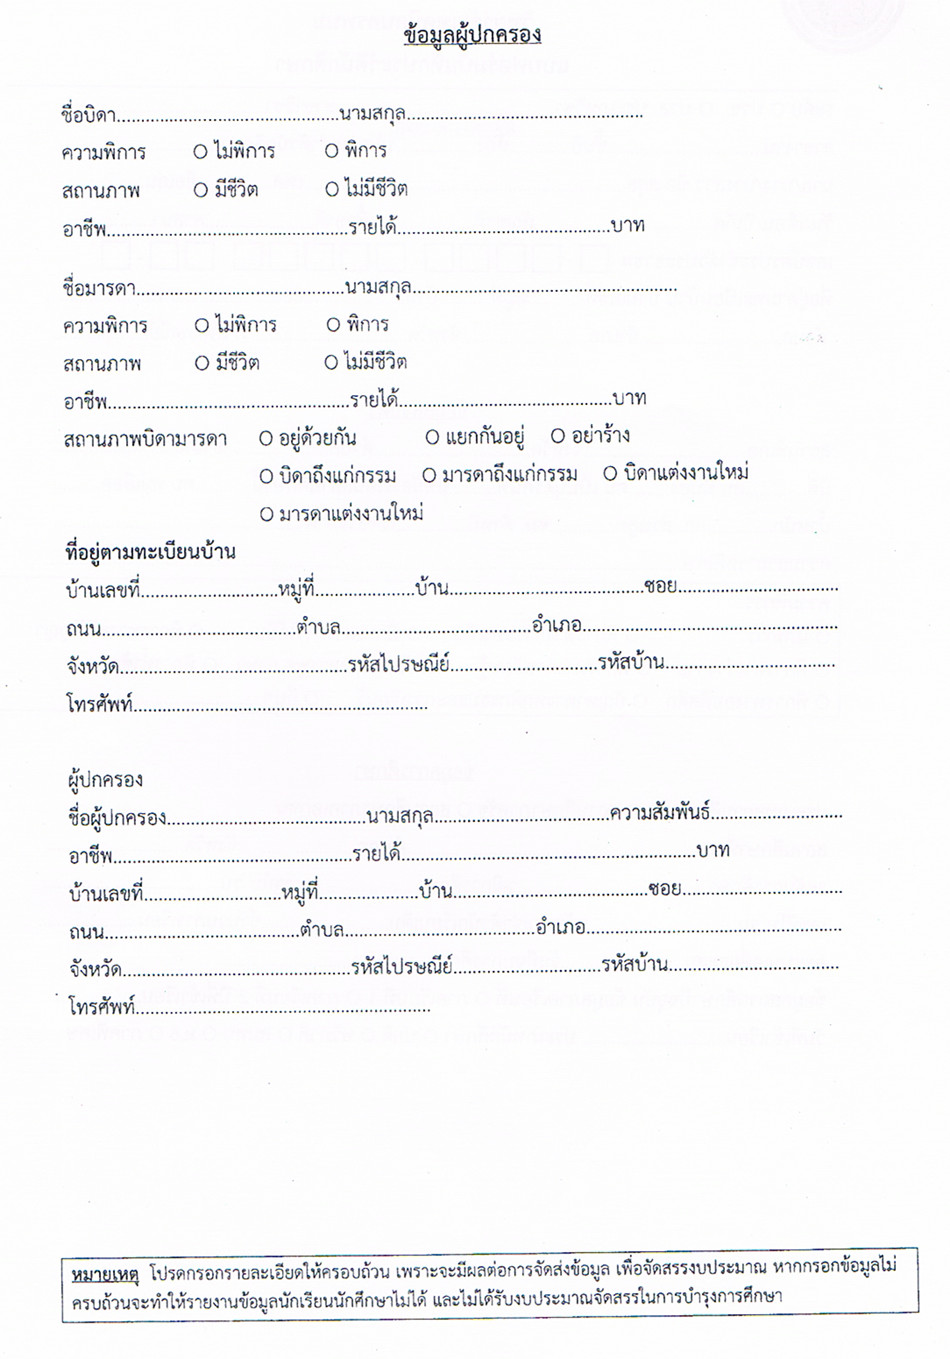 ข้อมูลผู้ปกครอง
ชื่อบิดา..............................................นามสกุล.................................................
ความพิการ O ไม่พิการ O พิการ
สถานภาพ O มีชีวิต O ไม่มีชีวิต
อาชีพ..................................................รายได้............................................บาท
ชื่อมารดา...........................................นามสกุล.......................................................
ความพิการ O ไม่พิการ O พิการ
สถานภาพ O มีชีวิต O ไม่มีชีวิต
อาชีพ..................................................รายได้............................................บาท
สถานภาพบิดามารดา O อยู่ด้วยกัน O แยกกันอยู่ O อย่าร้าง
O บิดาถึงแก่กรรม O มารดาถึงแก่กรรม O บิดาแต่งงานใหม่
O มารดาแต่งงานใหม่
ที่อยู่ตามทะเบียนบ้าน
บ้านเลขที่.............................หมู่ที่.....................บ้าน.........................................ซอย.................................
ถนน.........................................ตำบล........................................อำเภอ.....................................................
จังหวัด................................................รหัสไปรษณีย์...............................รหัสบ้าน...................................
โทรศัพท์.............................................................
ผู้ปกครอง
ชื่อผู้ปกครอง.........................................นามสกุล.....................................ความสัมพันธ์...........................
อาชีพ..................................................รายได้.............................................................บาท
บ้านเลขที่.............................หมู่ที่.....................บ้าน.........................................ซอย.................................
ถนน.........................................ตำบล........................................อำเภอ.....................................................
จังหวัด................................................รหัสไปรษณีย์...............................รหัสบ้าน...................................
โทรศัพท์.............................................................
หมายเหตุ โปรดกรอกรายละเอียดให้ครอบถ้วน เพราะจะมีผลต่อการจัดส่งข้อมูล เพื่อจัดสรรงบประมาณ หากกรอกข้อมูลไม่
ครบถ้วนจะทำให้รายงานข้อมูลนักเรียนนักศึกษาไม่ได้ และไม่ได้รับงบประมาณจัดสรรในการบำรุงการศึกษา